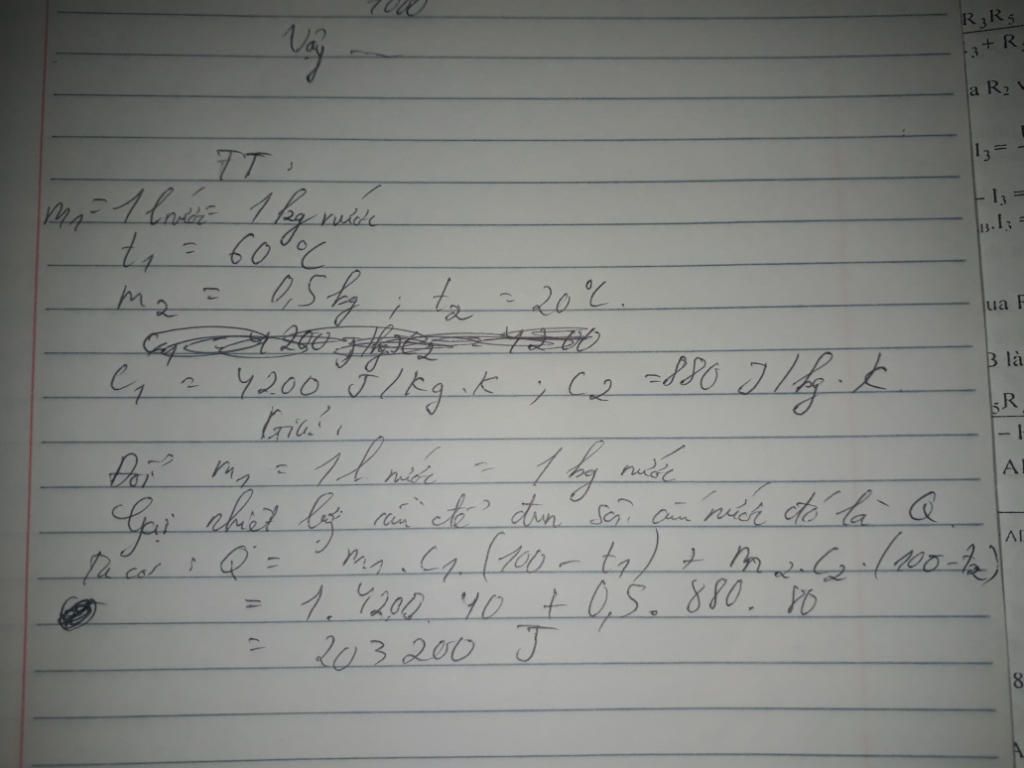 1000
Vậy
TT:
m1 = 1 l nước = 1 kg nước
t1 = 60°C
m2 = 0,5 kg ; t2 = 20°C.
C1 = 4200 J/kg.K ; C2 = 880 J/kg.K
Giải:
Đổi m1 = 1 l nước = 1 kg nước
Gọi nhiệt lượng cần để đun sôi ấm nước đó là Q
Ta có : Q = m1.C1.(100 - t1) + m2.C2.(100 - t2)
= 1.4200.40 + 0,5.880.80
= 203 200 J
R3R5
3 + R
a R2 v
I3 =
- I3 =
.I3 =
ua R
3 là
5R
- I
A
8
A